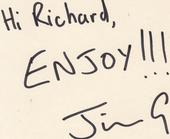 Hi Richard,
ENJOY!!!
Jim G